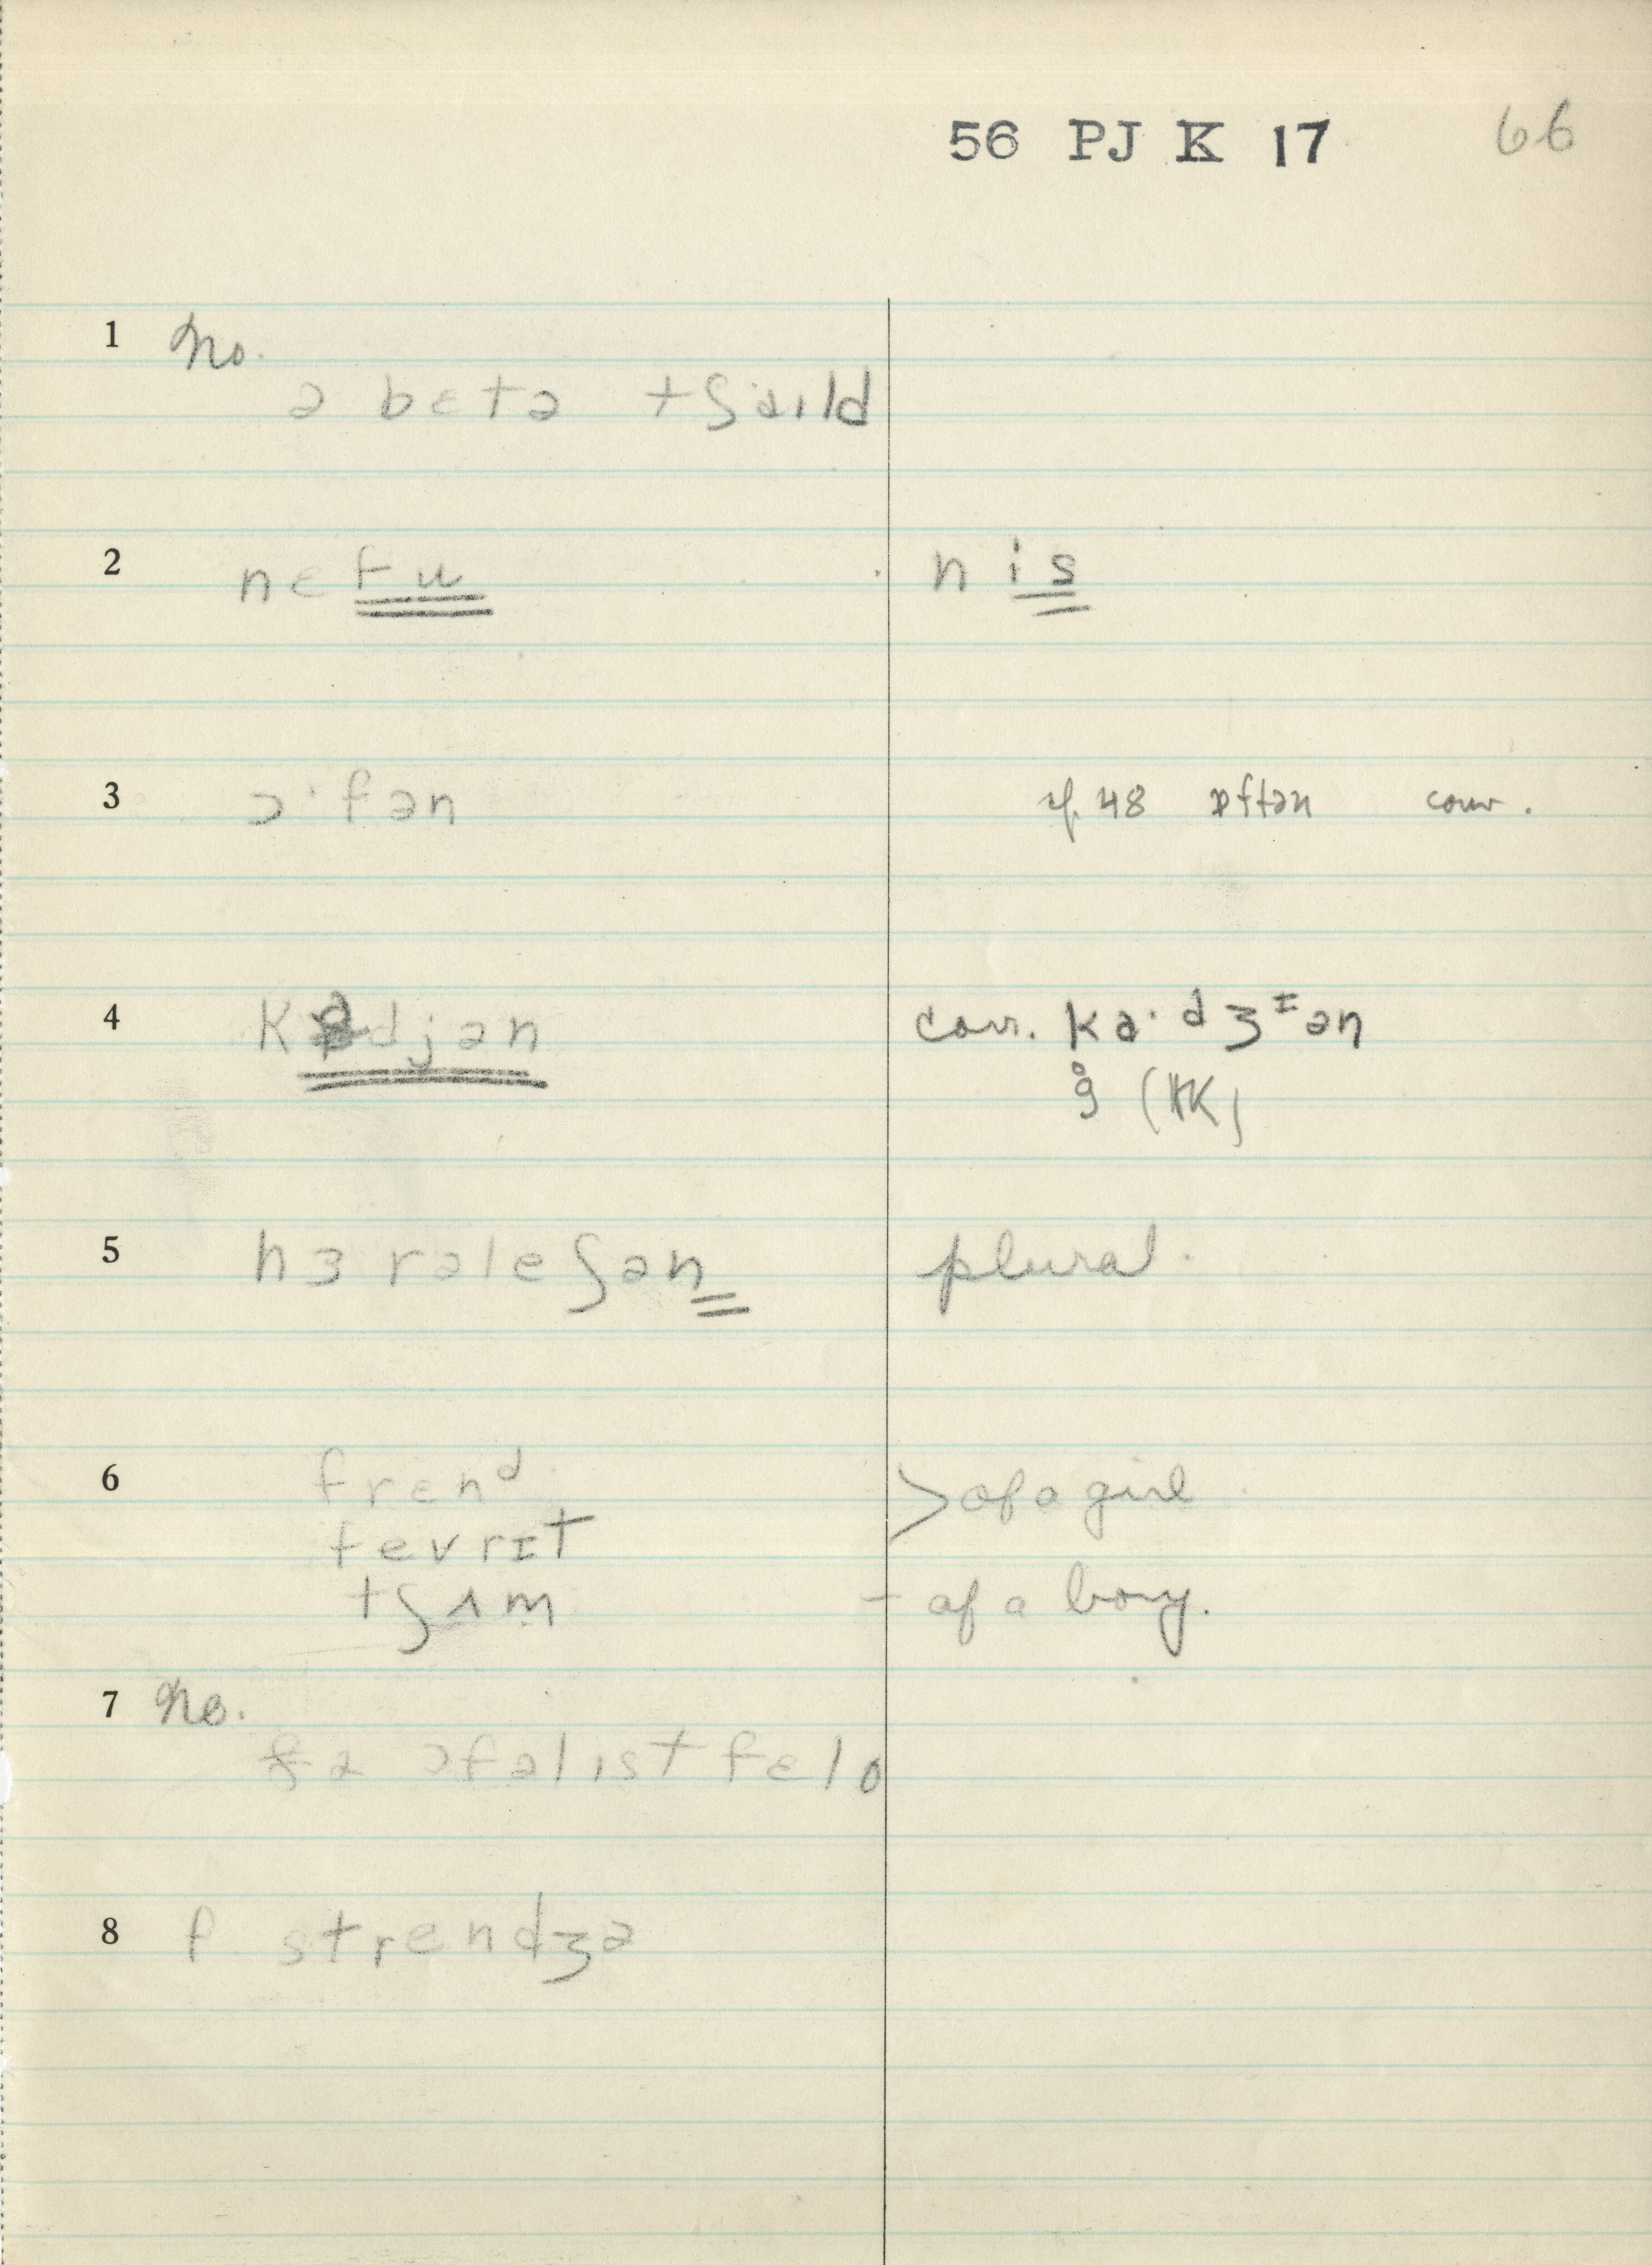 56 PJ K 17 66
1 No.
ə bɛtə tʃaild
2 nɛfu nis
3 ɔ·fən cf. 48 ɒftən conv.
4 K djən conv. ka·dʒɪən
(HK)
5 hɜ rəleʃən plural.
6 frɛnd > of a girl
fevrɪt
tʃʌm - of a boy.
7 No.
ə ɔfəlist fɛlo
8 f. strendʒə